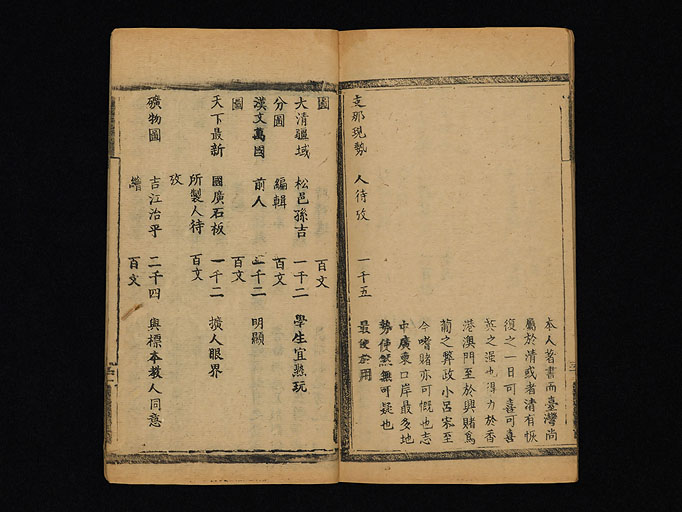 支那現勢 人待攷 一千五
本人著書而臺灣尚
屬於清或者清有恢
復之一日可喜可喜
英之强也得力於香
港澳門至於興賭爲
葡之弊政小呂宋至
今嗜賭亦可慨也志
中廣東口岸最多地
勢使然無可疑也
最便玄用
圖 百文
大清疆域 松邑孫吉 一千二 學生宜熟玩
分圖 編輯 百文
漢文萬國 前人 一千二 明顯
圖 百文
天下最新 國廣石板 一千二 擴人眼界
所製人待 百文
攷
礦物圖 吉江治平 二千四 與標本教人同意
繪 百文